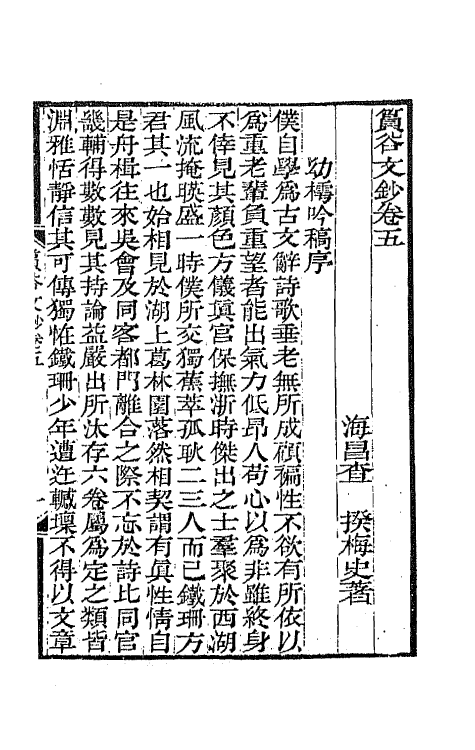 篔谷文鈔卷五
海昌查　揆梅史著
幼樗吟稿序
僕自學爲古文辭詩歌垂老無所成顧褊性不欲有所依以
爲重老輩負重望者能出氣力低昂人苟心以爲非雖終身
不倖見其顏色方儀眞官保撫浙時傑出之士羣聚於西湖
風流掩暎盛一時僕所交獨蕉萃孤耿二三人而已鐵珊方
君其一也始相見於湖上葛林園落然相契謂有眞性情自
是舟楫往來吳會及同客都門離合之際不忘於詩比同官
畿輔得數數見其持論益嚴出所汰存六卷屬爲定之類皆
淵雅恬靜信其可傳獨恠鐵珊少年遭迍轗壈不得以文章
篔谷文鈔卷五
一